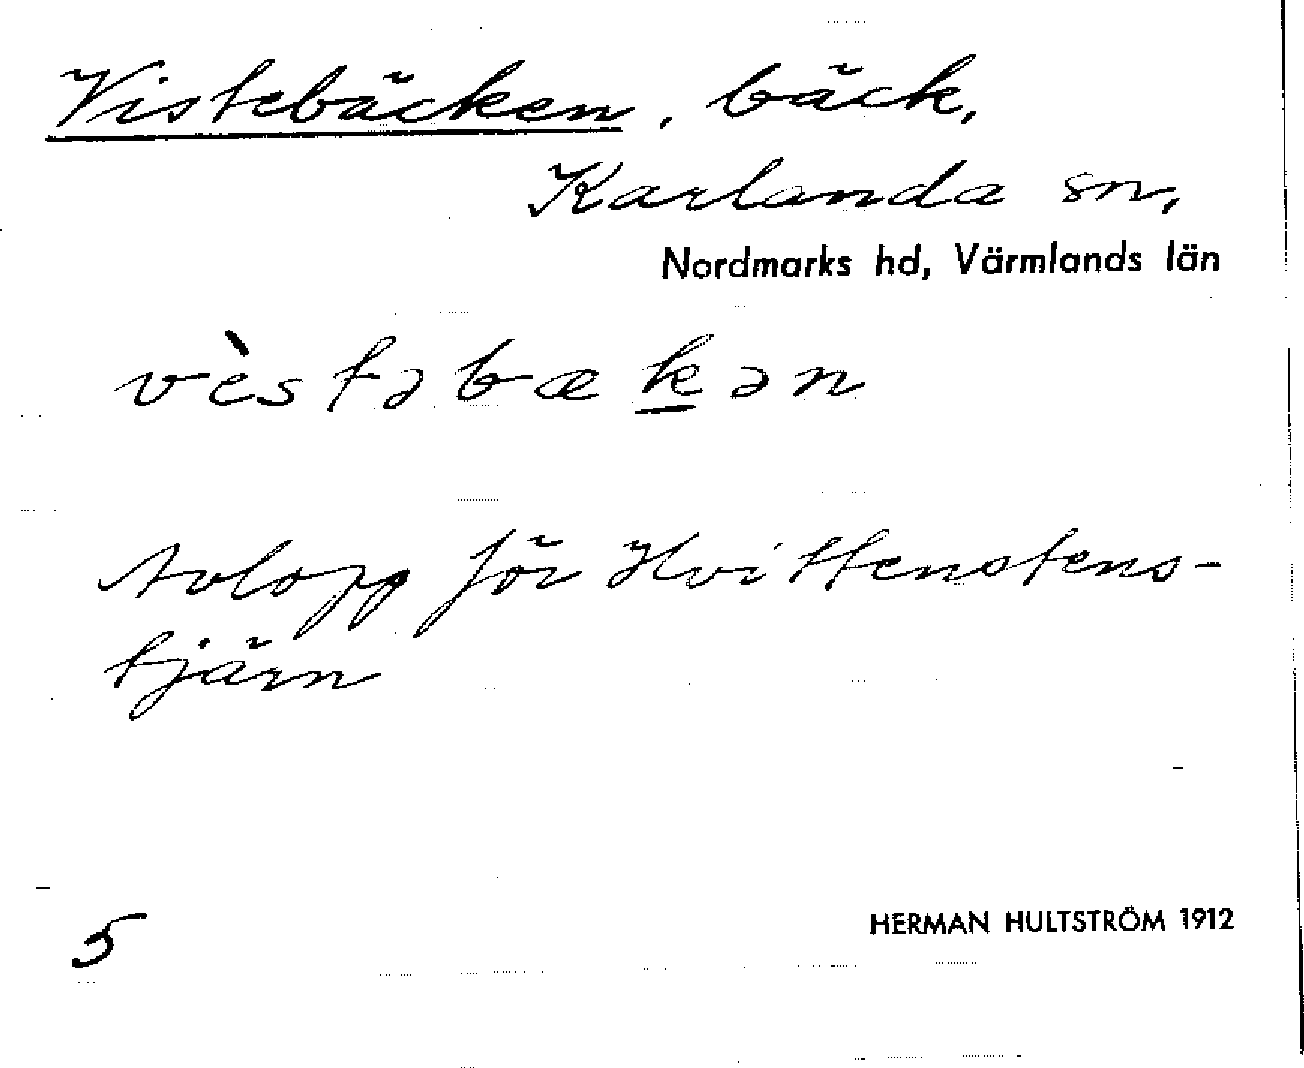 Vistebäcken, bäck,
Karlanda sn,
Nordmarks hd, Värmlands län
vèstəbækən
Avlopp för Hvittenstens-
tjärn
5
HERMAN HULTSTRÖM 1912